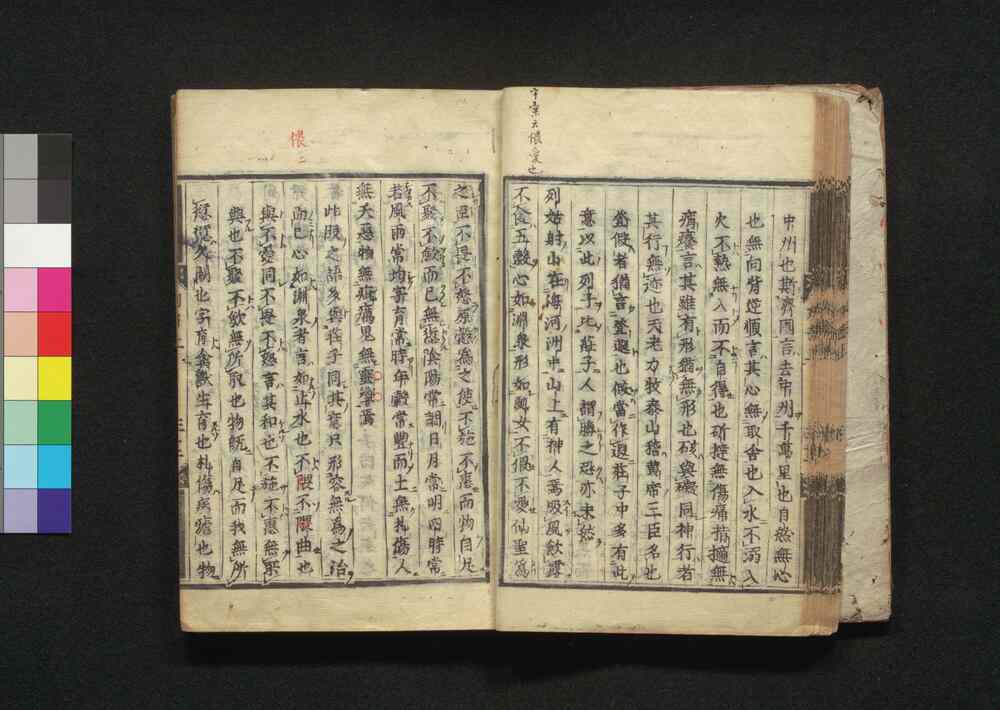 字彙云偎愛也
中州也斯齊國言去中州千萬里也自然無心
也無向背逆順言其心無取舍也入水不溺入
火不熱無入而不自得也斫撻無傷痛指擿無
痟癢言其雖有形猶無形也硋與礙同神行若
其行無迹也天老力牧泰山稽黄帝三臣名也
登假者猶言登遐也假當作遐莊子中多有此
意以此列子比莊子人謂勝之恐亦未然
列姑射山在海河洲中山上有神人焉吸風飲露
不食五穀心如淵泉形如處女不偎不愛仙聖為
之臣不畏不怒愿慤為之使不施不惠而物自足
不聚不歛而已無愆陰陽常調日月常明四時常
若風雨常均字育常時年穀常豐而土無札傷人
無夭惡物無疵癘鬼無靈響焉
此段之語多與莊子同其意只形容無為之治
而已心如淵泉者言如止水也不隈不隈曲也
與不愛同不畏不怒言其和也不施不惠無所
與也不聚不歛無所取也物既自足而我無所
愆從欠闕也字育禽獸生育也札傷病瘧也物
偎